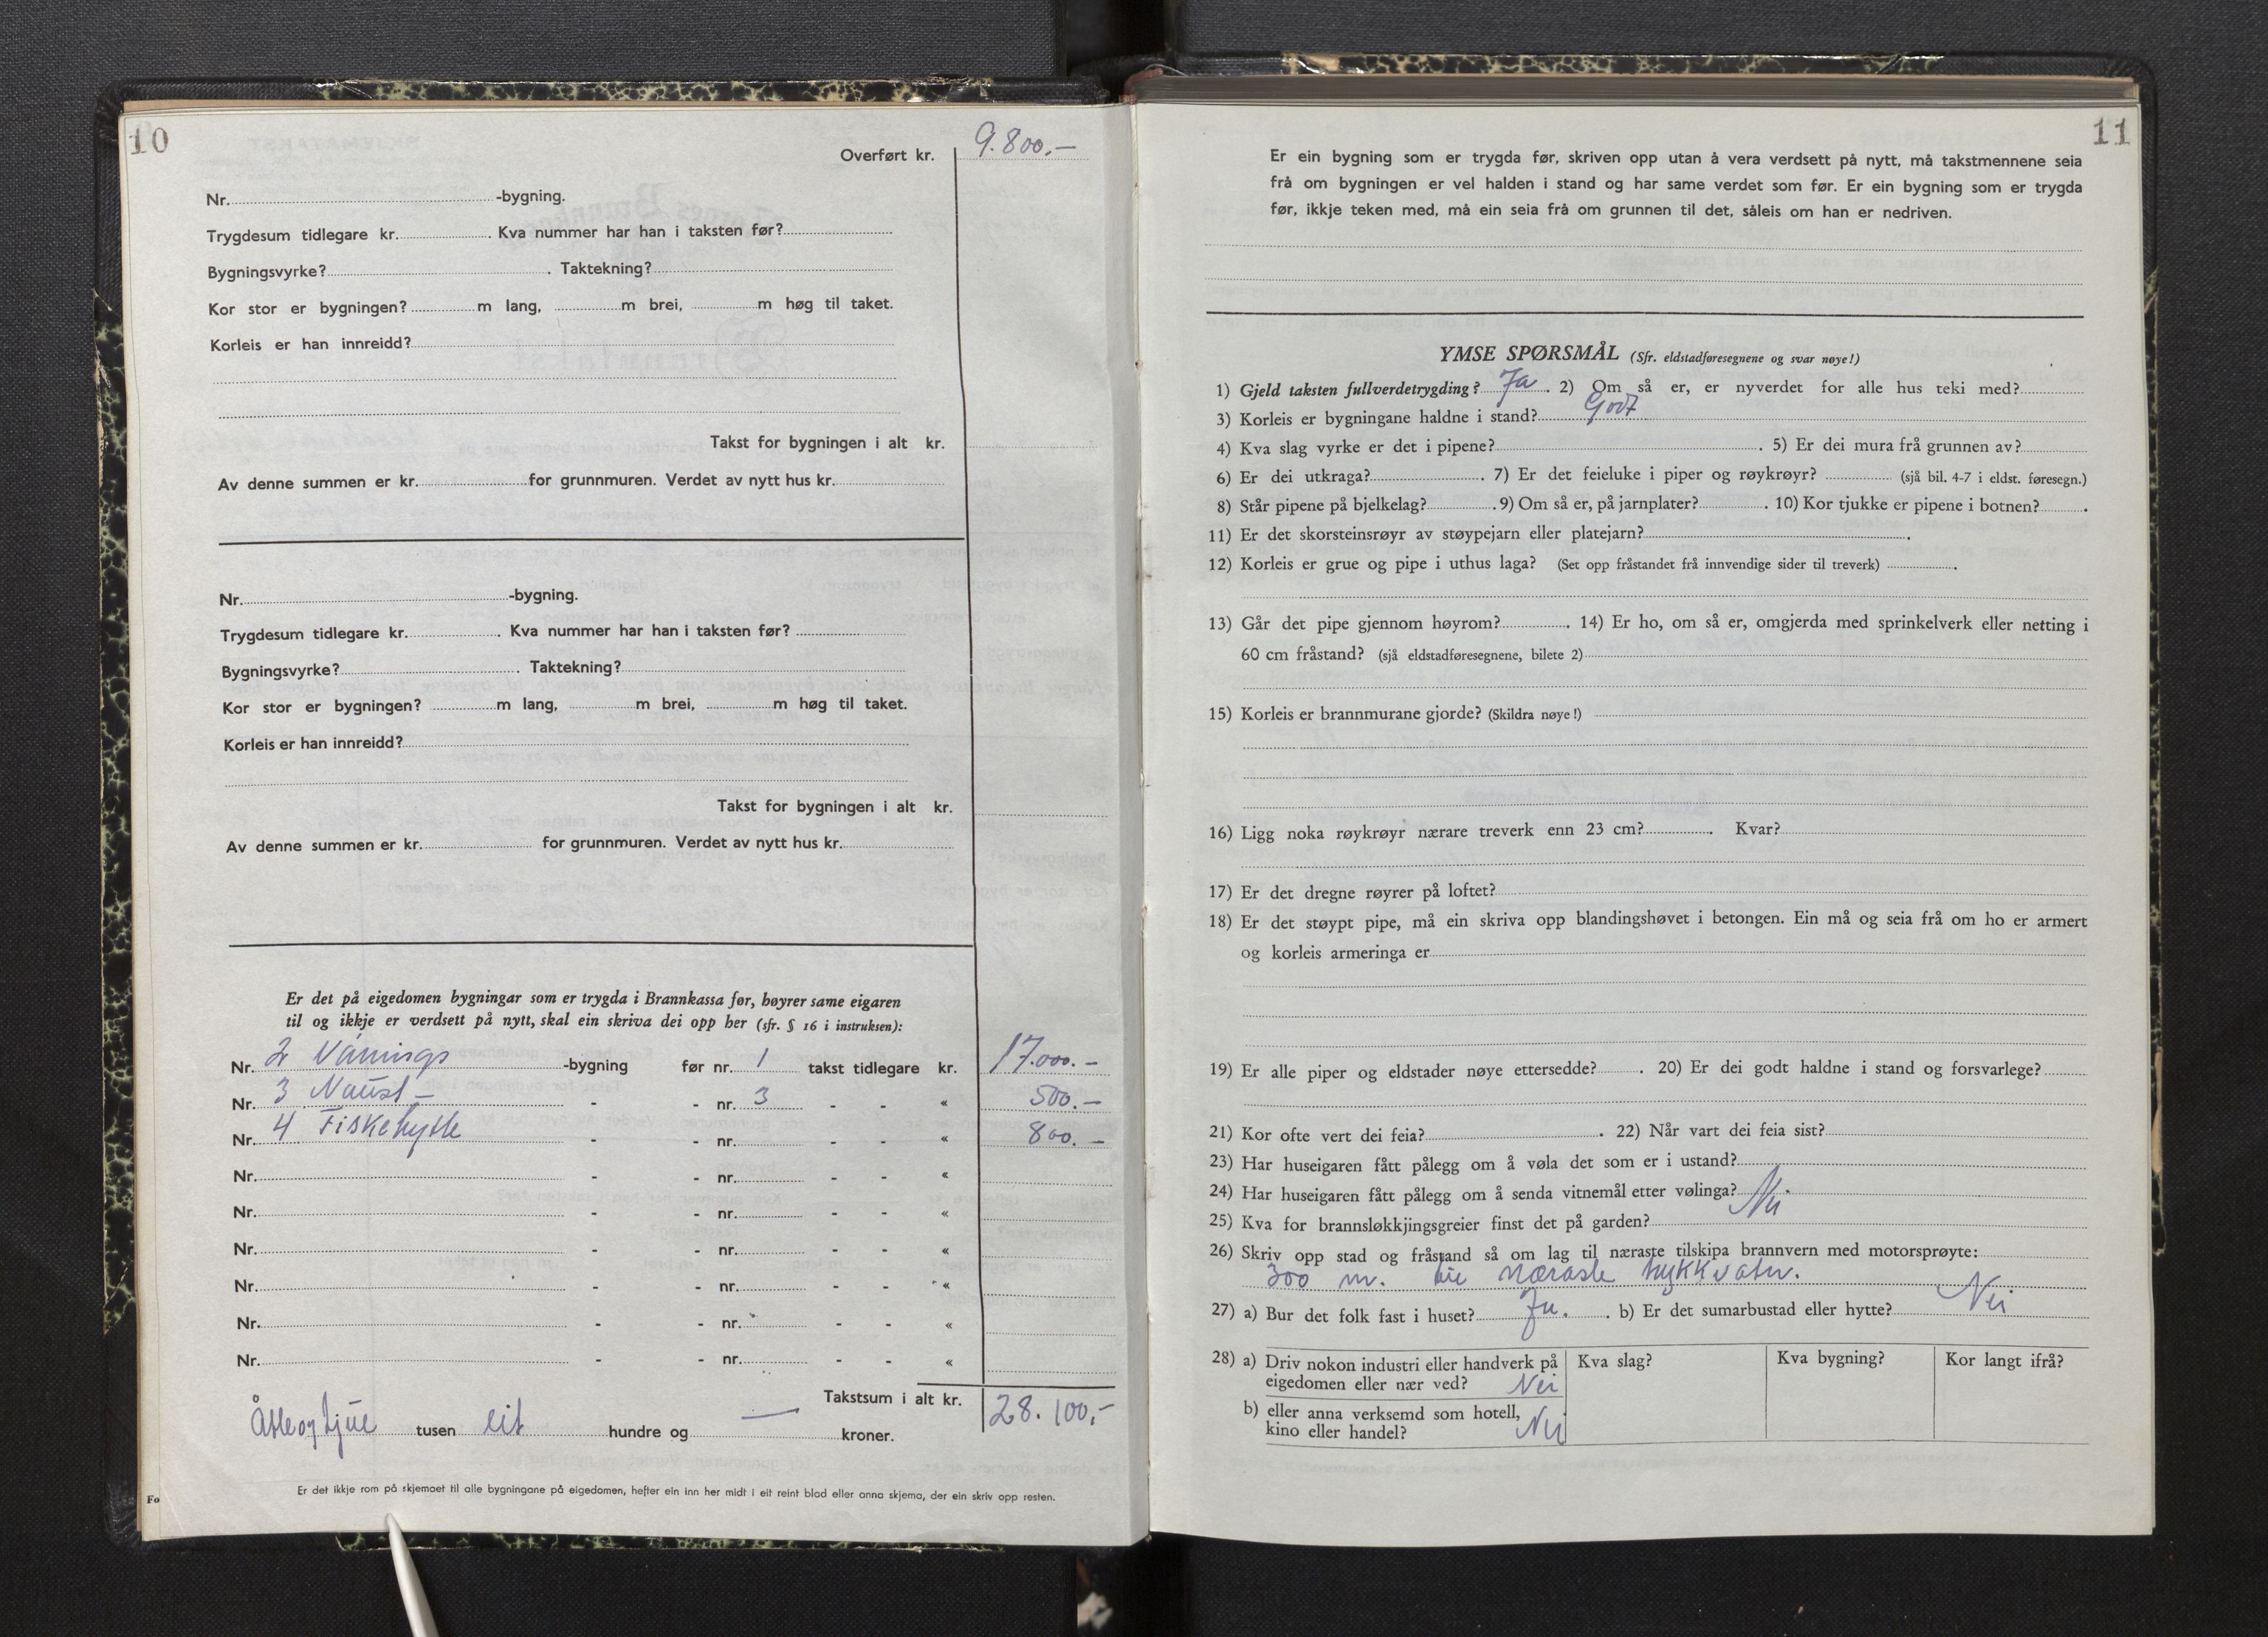 10
Overført kr. 9.800.-
Nr. -bygning.
Trygdesum tidlegare kr. . Kva nummer har han i taksten før?
Bygningsvyrke? . Taktekning?
Kor stor er bygningen? m lang, m brei, m høg til taket.
Korleis er han innreidd?
Takst for bygningen i alt kr.
Av denne summen er kr. for grunnmuren. Verdet av nytt hus kr.
Nr. -bygning.
Trygdesum tidlegare kr. . Kva nummer har han i taksten før?
Bygningsvyrke? . Taktekning?
Kor stor er bygningen? m lang, m brei, m høg til taket.
Korleis er han innreidd?
Takst for bygningen i alt kr.
Av denne summen er kr. for grunnmuren. Verdet av nytt hus kr.
Er det på eigedomen bygningar som er trygda i Brannkassa før, høyrer same eigaren
til og ikkje er verdsett på nytt, skal ein skriva dei opp her (sfr. § 16 i instruksen):
Nr. 2 Vånings -bygning før nr. 1 takst tidlegare kr. 17.000.-
Nr. 3 Naust - - - nr. 3 - - « 500.-
Nr. 4 Fiskehytte - - nr. - - « 800.-
Nr. - - nr. - - «
Nr. - - nr. - - «
Nr. - - nr. - - «
Nr. - - nr. - - «
Nr. - - nr. - - «
Nr. - - nr. - - «
Takstsum i alt kr. 28.100,-
Åtteogtjue tusen eit hundre og — kroner.
Er det ikkje rom på skjemaet til alle bygningane på eigedomen, hefter ein inn her midt i eit reint blad eller anna skjema, der ein skriv opp resten.
Fo
11
Er ein bygning som er trygda før, skriven opp utan å vera verdsett på nytt, må takstmennene seia
frå om bygningen er vel halden i stand og har same verdet som før. Er ein bygning som er trygda
før, ikkje teken med, må ein seia frå om grunnen til det, såleis om han er nedriven.
YMSE SPØRSMÅL (Sfr. eldstadføresegnene og svar nøye!)
1) Gjeld taksten fullverdetrygding? Ja . 2) Om så er, er nyverdet for alle hus teki med?
3) Korleis er bygningane haldne i stand? Godt
4) Kva slag vyrke er det i pipene? . 5) Er dei mura frå grunnen av?
6) Er dei utkraga? . 7) Er det feieluke i piper og røykrøyr? (sjå bil. 4-7 i eldst. føresegn.)
8) Står pipene på bjelkelag? . 9) Om så er, på jarnplater? . 10) Kor tjukke er pipene i botnen? .
11) Er det skorsteinsrøyr av støypejarn eller platejarn? .
12) Korleis er grue og pipe i uthus laga? (Set opp fråstandet frå innvendige sider til treverk) .
13) Går det pipe gjennom høyrom? . 14) Er ho, om så er, omgjerda med sprinkelverk eller netting i
60 cm fråstand? (sjå eldstadføresegnene, bilete 2)
15) Korleis er brannmurane gjorde? (Skildra nøye!)
16) Ligg noka røykrøyr nærare treverk enn 23 cm? . Kvar?
17) Er det dregne røyrer på loftet?
18) Er det støypt pipe, må ein skriva opp blandingshøvet i betongen. Ein må og seia frå om ho er armert
og korleis armeringa er
19) Er alle piper og eldstader nøye ettersedde? . 20) Er dei godt haldne i stand og forsvarlege?
21) Kor ofte vert dei feia? . 22) Når vart dei feia sist?
23) Har huseigaren fått pålegg om å vøla det som er i ustand?
24) Har huseigaren fått pålegg om å senda vitnemål etter vølinga? Nei.
25) Kva for brannsløkkjingsgreier finst det på garden?
26) Skriv opp stad og fråstand så om lag til næraste tilskipa brannvern med motorsprøyte:
300 m. til næraste trykkvatn.
27) a) Bur det folk fast i huset? Ja. . b) Er det sumarbustad eller hytte? Nei
28) a) Driv nokon industri eller handverk på Kva slag? Kva bygning? Kor langt ifrå?
eigedomen eller nær ved? Nei
b) eller anna verksemd som hotell,
kino eller handel? Nei